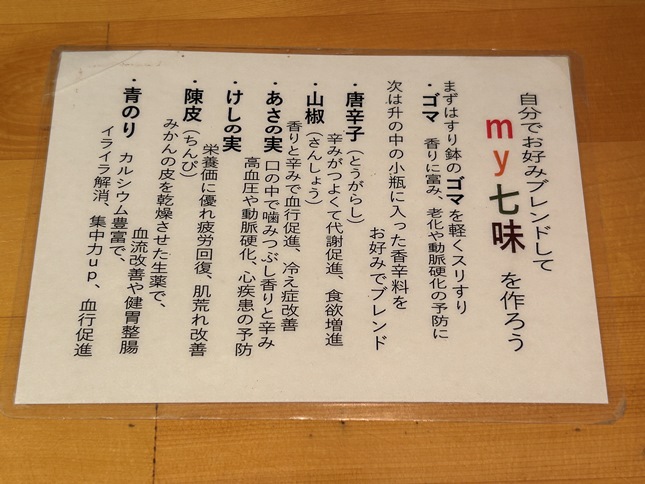 自分でお好みブレンドして
my七味 を作ろう
まずはすり鉢のゴマを軽くスリすり
・ゴマ 香りに富み、老化や動脈硬化の予防に
次は升の中の小瓶に入った香辛料を
お好みでブレンド
・唐辛子（とうがらし）
辛みがつよくて代謝促進、食欲増進
・山椒（さんしょう）
香りと辛みで血行促進、冷え症改善
・あさの実 口の中で噛みつぶし香りと辛み
高血圧や動脈硬化、心疾患の予防
・けしの実
栄養価に優れ疲労回復、肌荒れ改善
・陳皮（ちんぴ）
みかんの皮を乾燥させた生薬で、
血流改善や健胃整腸
・青のり カルシウム豊富で、
イライラ解消、集中力up、血行促進